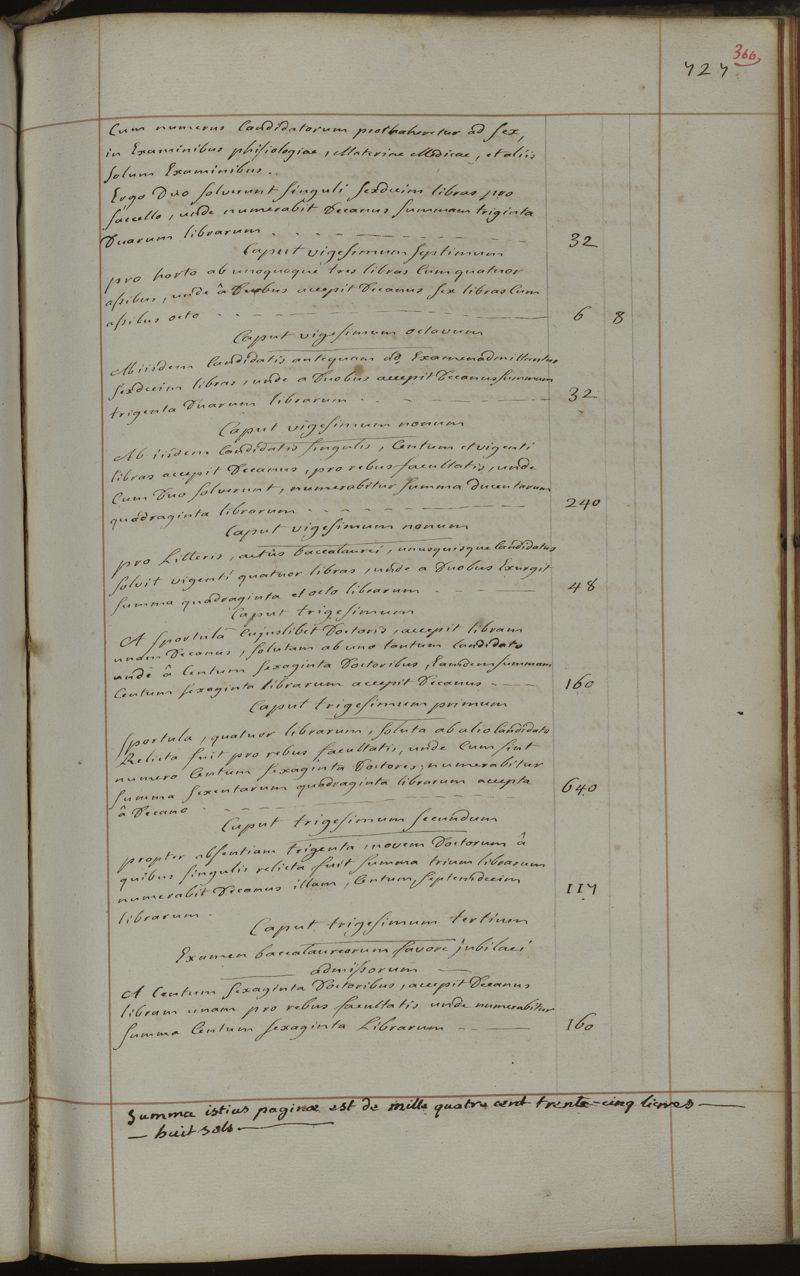 366
727
Cum numerus Candidatorum protraheretur ad sex,
in Examinibus phisiologiae, Materiae Medicae, et aliis
solum Examinibus.
Ergo Duo solverunt singuli sexdecim libras pro
saccello, unde numerabit Decanus summam triginta
Duarum librarum 32
Caput vigesimum septimum
pro horto ab unoquoque tres libras Cum quatuor
assibus, unde â Duobus accepit Decanus sex libras Cum
assibus octo 6 8
Caput vigesimum octavum
Ab iisdem Candidatis antequam ad Examen admittuntur
sexdecim libras, unde a Duobus accepit Decanus summam
trigenta Duarum librarum 32
Caput vigesimum nonum
Ab iisdem Candidatis singulis, Centum et vigenti
libras accepit Decanus, pro rebus facultatis, unde
Cum Duo solverunt, numerabitur summa ducentarum
quadraginta librarum 240
Caput vigesimum nonum
pro Litteris, actûs baccalaurei, unusquisque Candidatus
solvit vigenti quatuor libras, unde a Duobus Exurgit
summa quadraginta et octo librarum 48
Caput trigesimum
A sportulâ Cujuslibet Doctoris, accepit libram
unam Decanus, solutam ab uno tantum Candidato
unde â Centum sexaginta Doctoribus, Eamdem summam
Centum sexaginta librarum accepit Decanus 160
Caput trigesimum primum
sportula, quatuor librarum, soluta ab alio Candidato
Relicta fuit pro rebus facultatis, unde Cum sint
numero Centum sexaginta Doctores, numerabitur
summa sexentarum quadraginta librarum accepta
â Decano 640
Caput trigesimum secundum
propter absentiam trigenta, novem Doctorum â
quibus singulis relicta fuit summa trium librarum
numerabit Decanus illam, Centum, septemdecim
librarum. 117
Caput trigesimum tertium
Examen baccalaureorum favore jubilaei
admissorum
A Centum sexaginta Doctoribus, accepit Decanus
libram unam pro rebus facultatis unde numerabitur
summa Centum sexaginta Librarum 160
Summa istius paginae est de mille quatre cent trente-cinq livres
huit sols